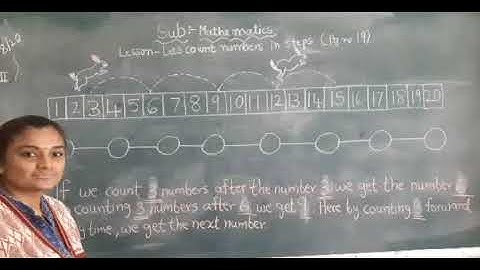 Sub:- Mathematics
Lesson - Lets count numbers in steps (Pg no 19)
II
1 2 3 4 5 6 7 8 9 10 11 12 13 14 15 16 17 18 19 20
If we count 3 numbers after the number 3 we get the number 6
counting 3 numbers after 6 we get 9. Here by counting 3 forward
y time, we get the next number.